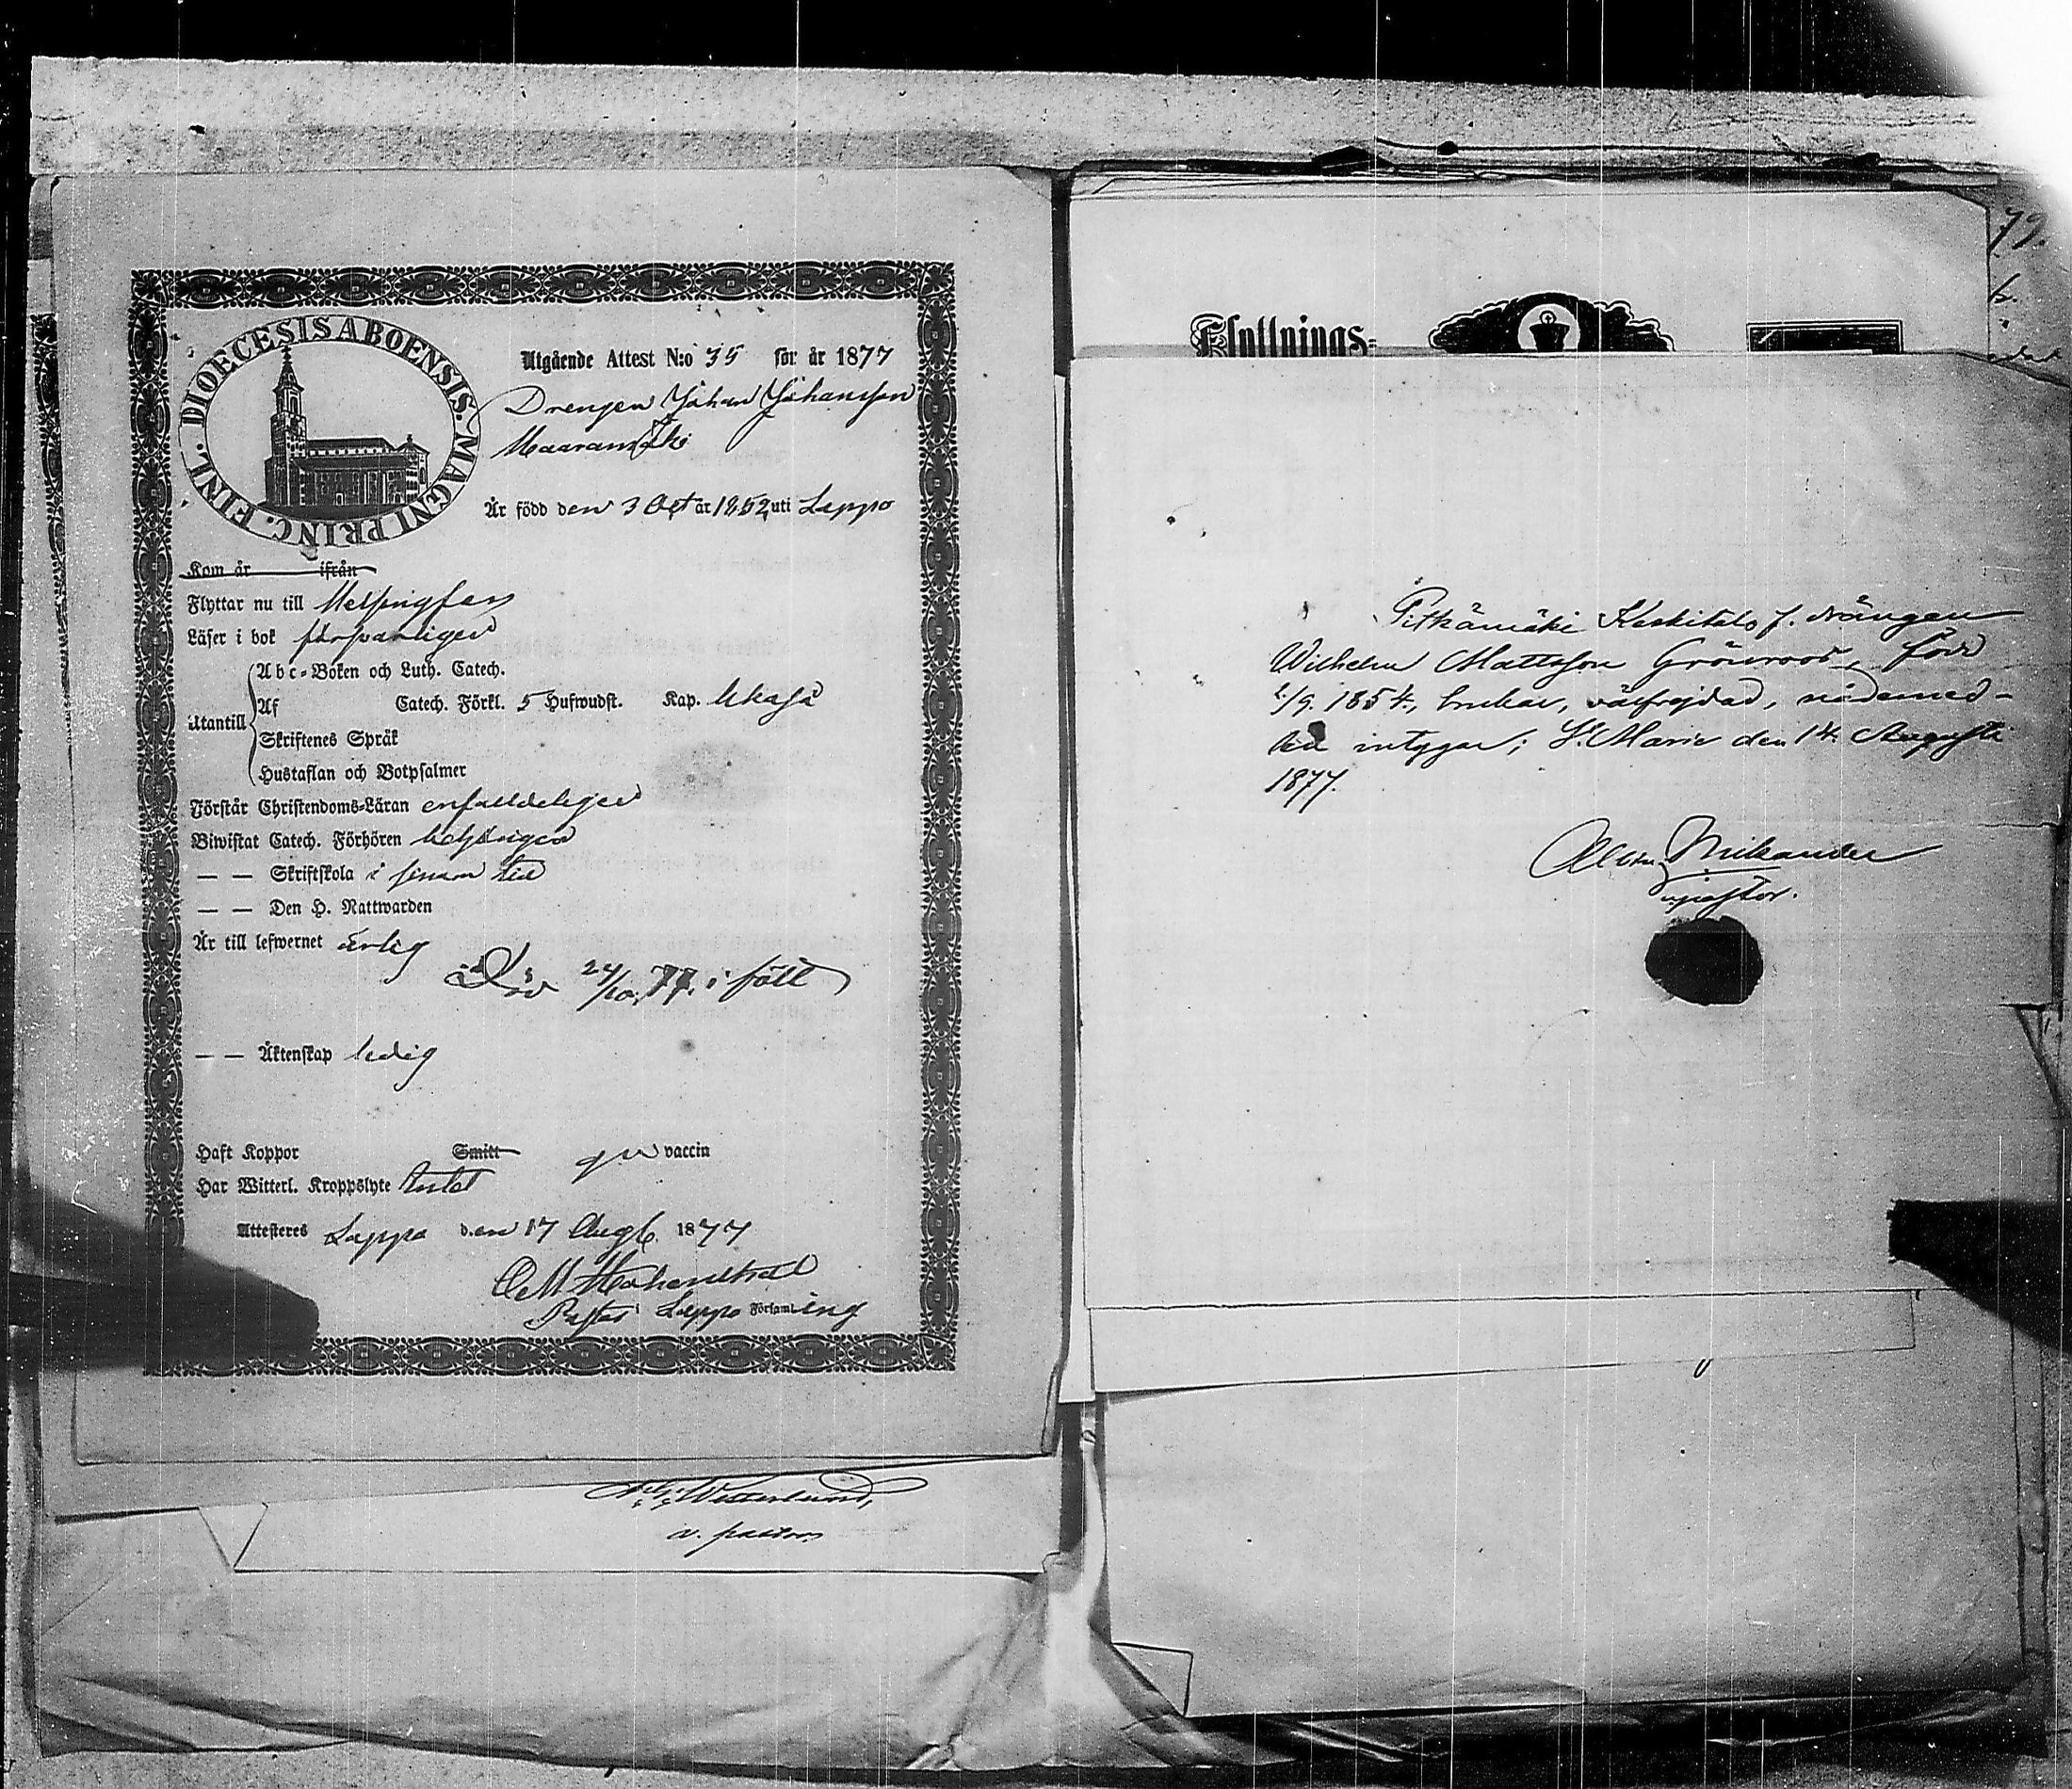 DIOECESIS ABOENSIS. MAGNI PRINC. FINL.
Utgående Attest N:o 35 för år 1877
Drengen Johan Johansson
Maaranmäki
Är född den 3 Oct år 1852 uti Lappo
Kom år ifrån
Flyttar nu till Helsingfors
Läser i bok försvarligen
Utantill
Abc-Boken och Luth. Catech.
Af Catech. Förkl. 5 Hufwudst. Kap.
Skriftenes Språk
Hustaflan och Botpsalmer
Förstår Christendoms-Läran enfaldeligen
Biwistat Catech. Förhören behörigen
— — Skriftskola i sinom tid
— — Den H. Nattwarden
Är till lefwernet ärlig
Död 24/10 77 i fält
— — Äktenskap ledig
Haft Koppor Smitt gm vaccin
Har Witterl. Kroppslyte intet
Attesteres Lappo den 17 Aug. 1877
Pastor i Lappo Församling
Westerlund,
v. pastor
79.
Flyttnings-
Pitkämäki Keskitalo f. drängen
Wilhelm Mattsson Grönroos, född
/9. 1854, brukar, välfrejdad, nådemed-
len intygar; S:t Marie den 14 Augusti
1877.
Albin Mikander
pastor.